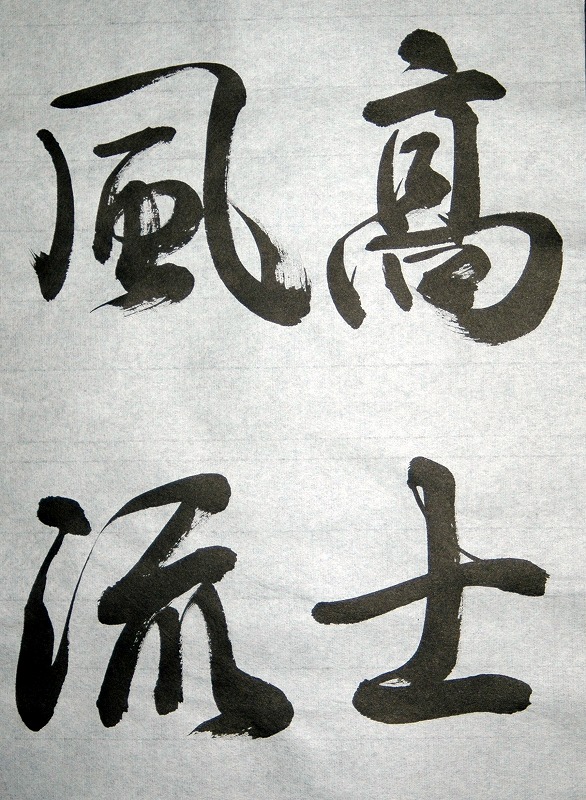 高士
風流